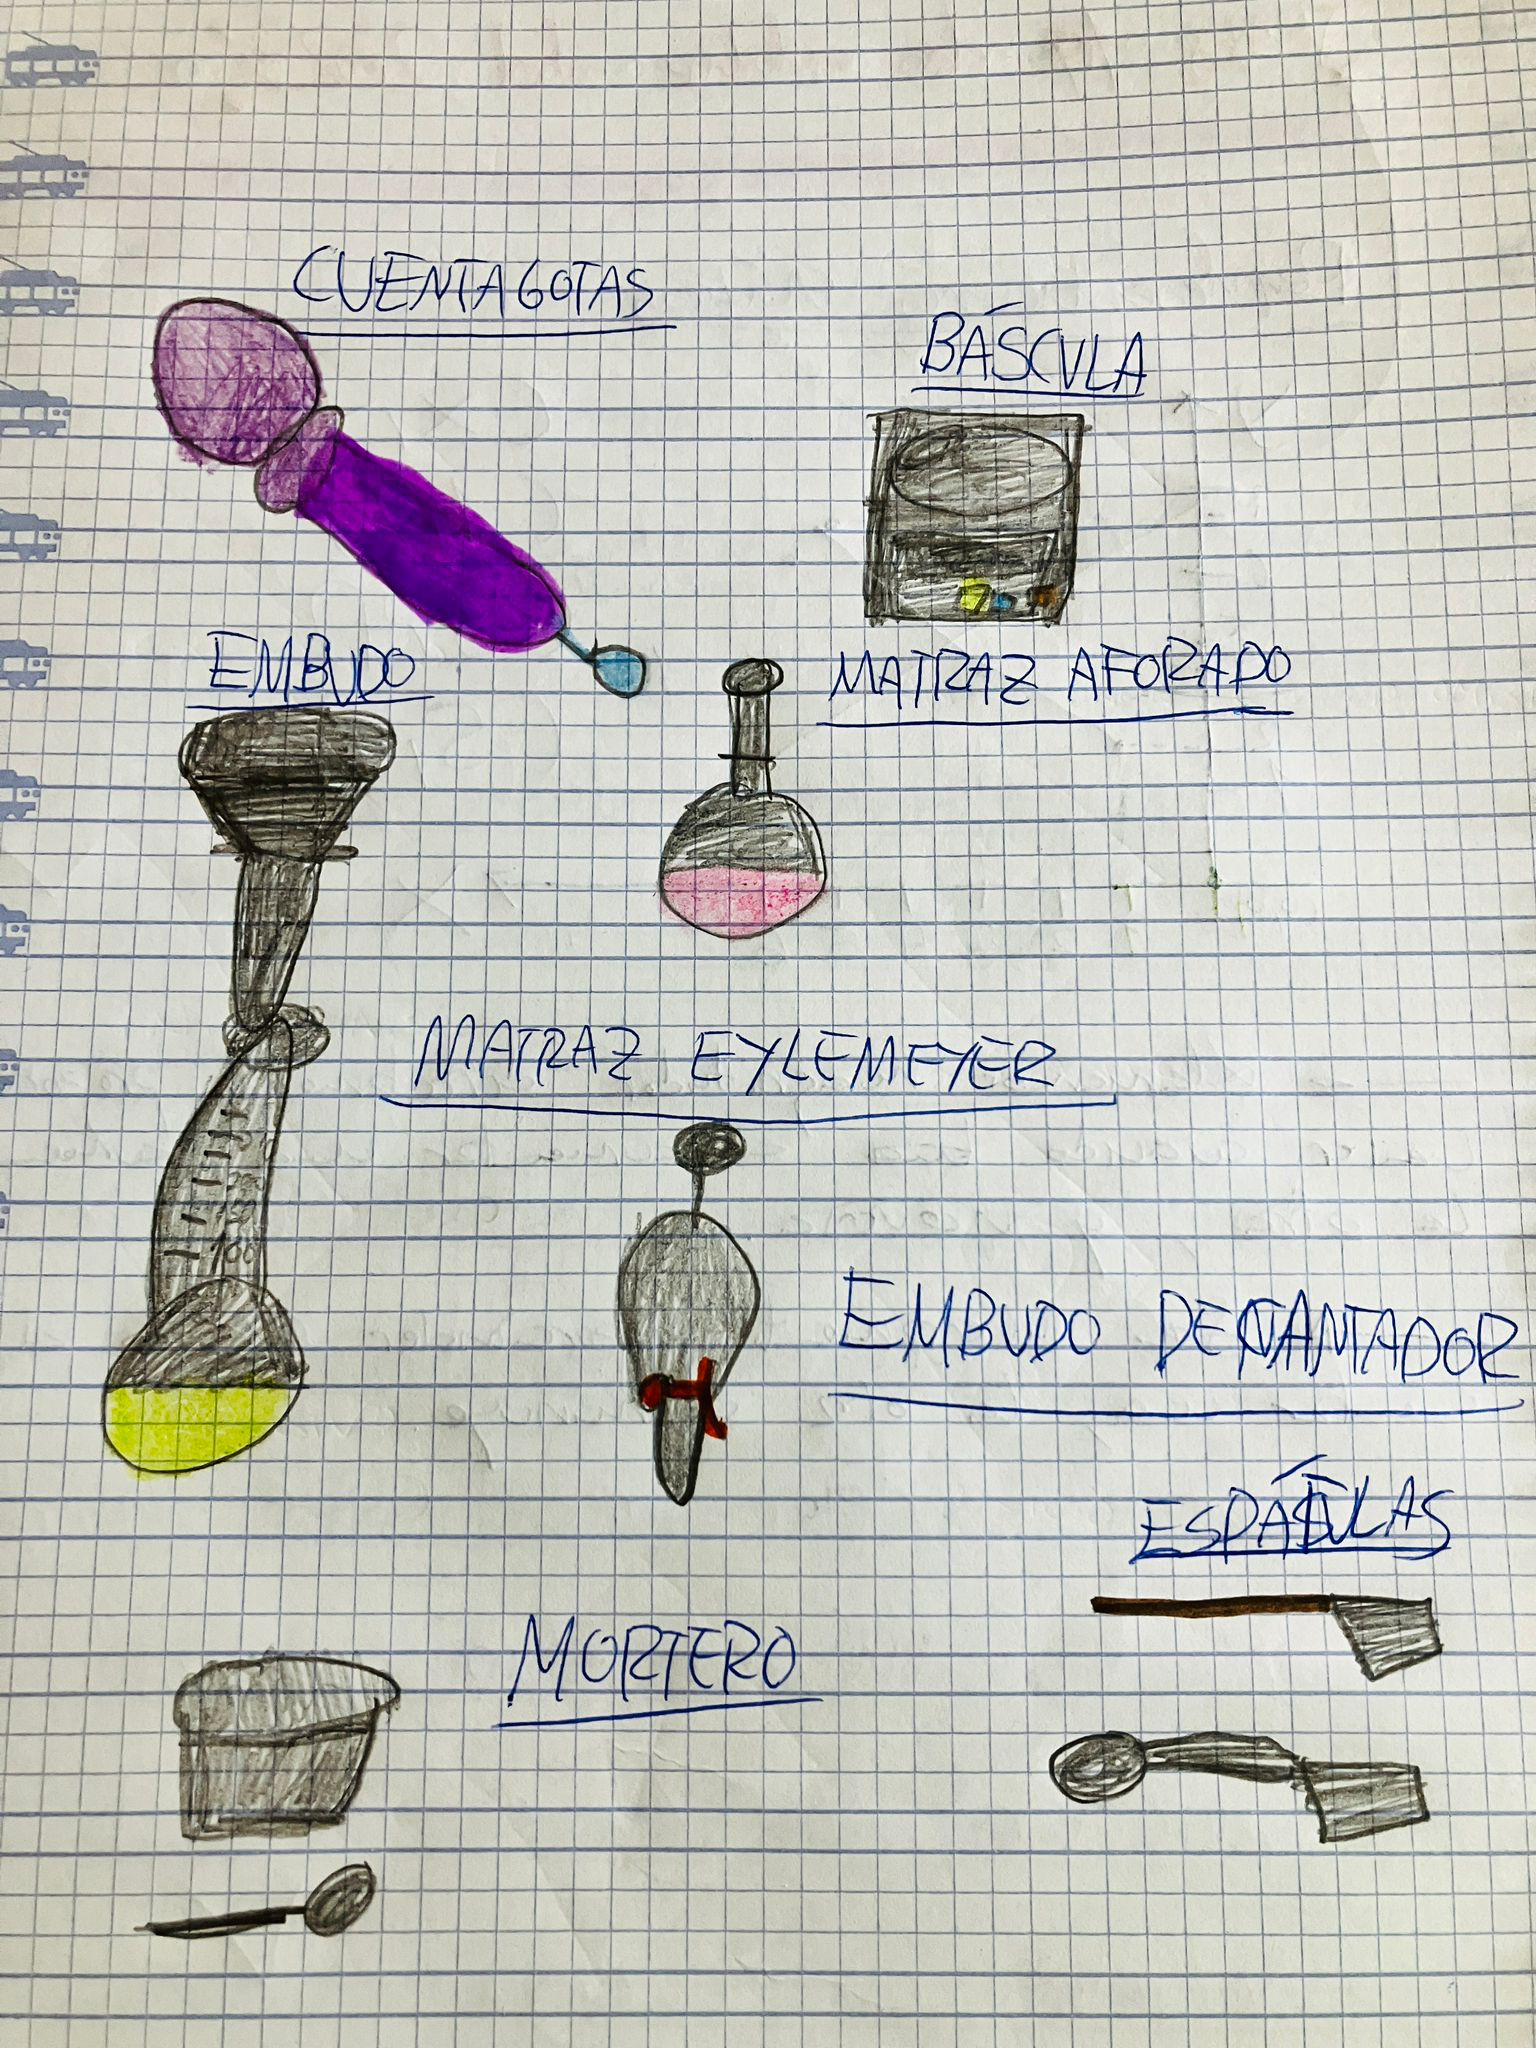 CUENTAGOTAS
BÁSCULA
EMBUDO
MATRAZ AFORADO
MATRAZ EYLEMEYER
100
EMBUDO DECANTADOR
ESPÁTULAS
MORTERO